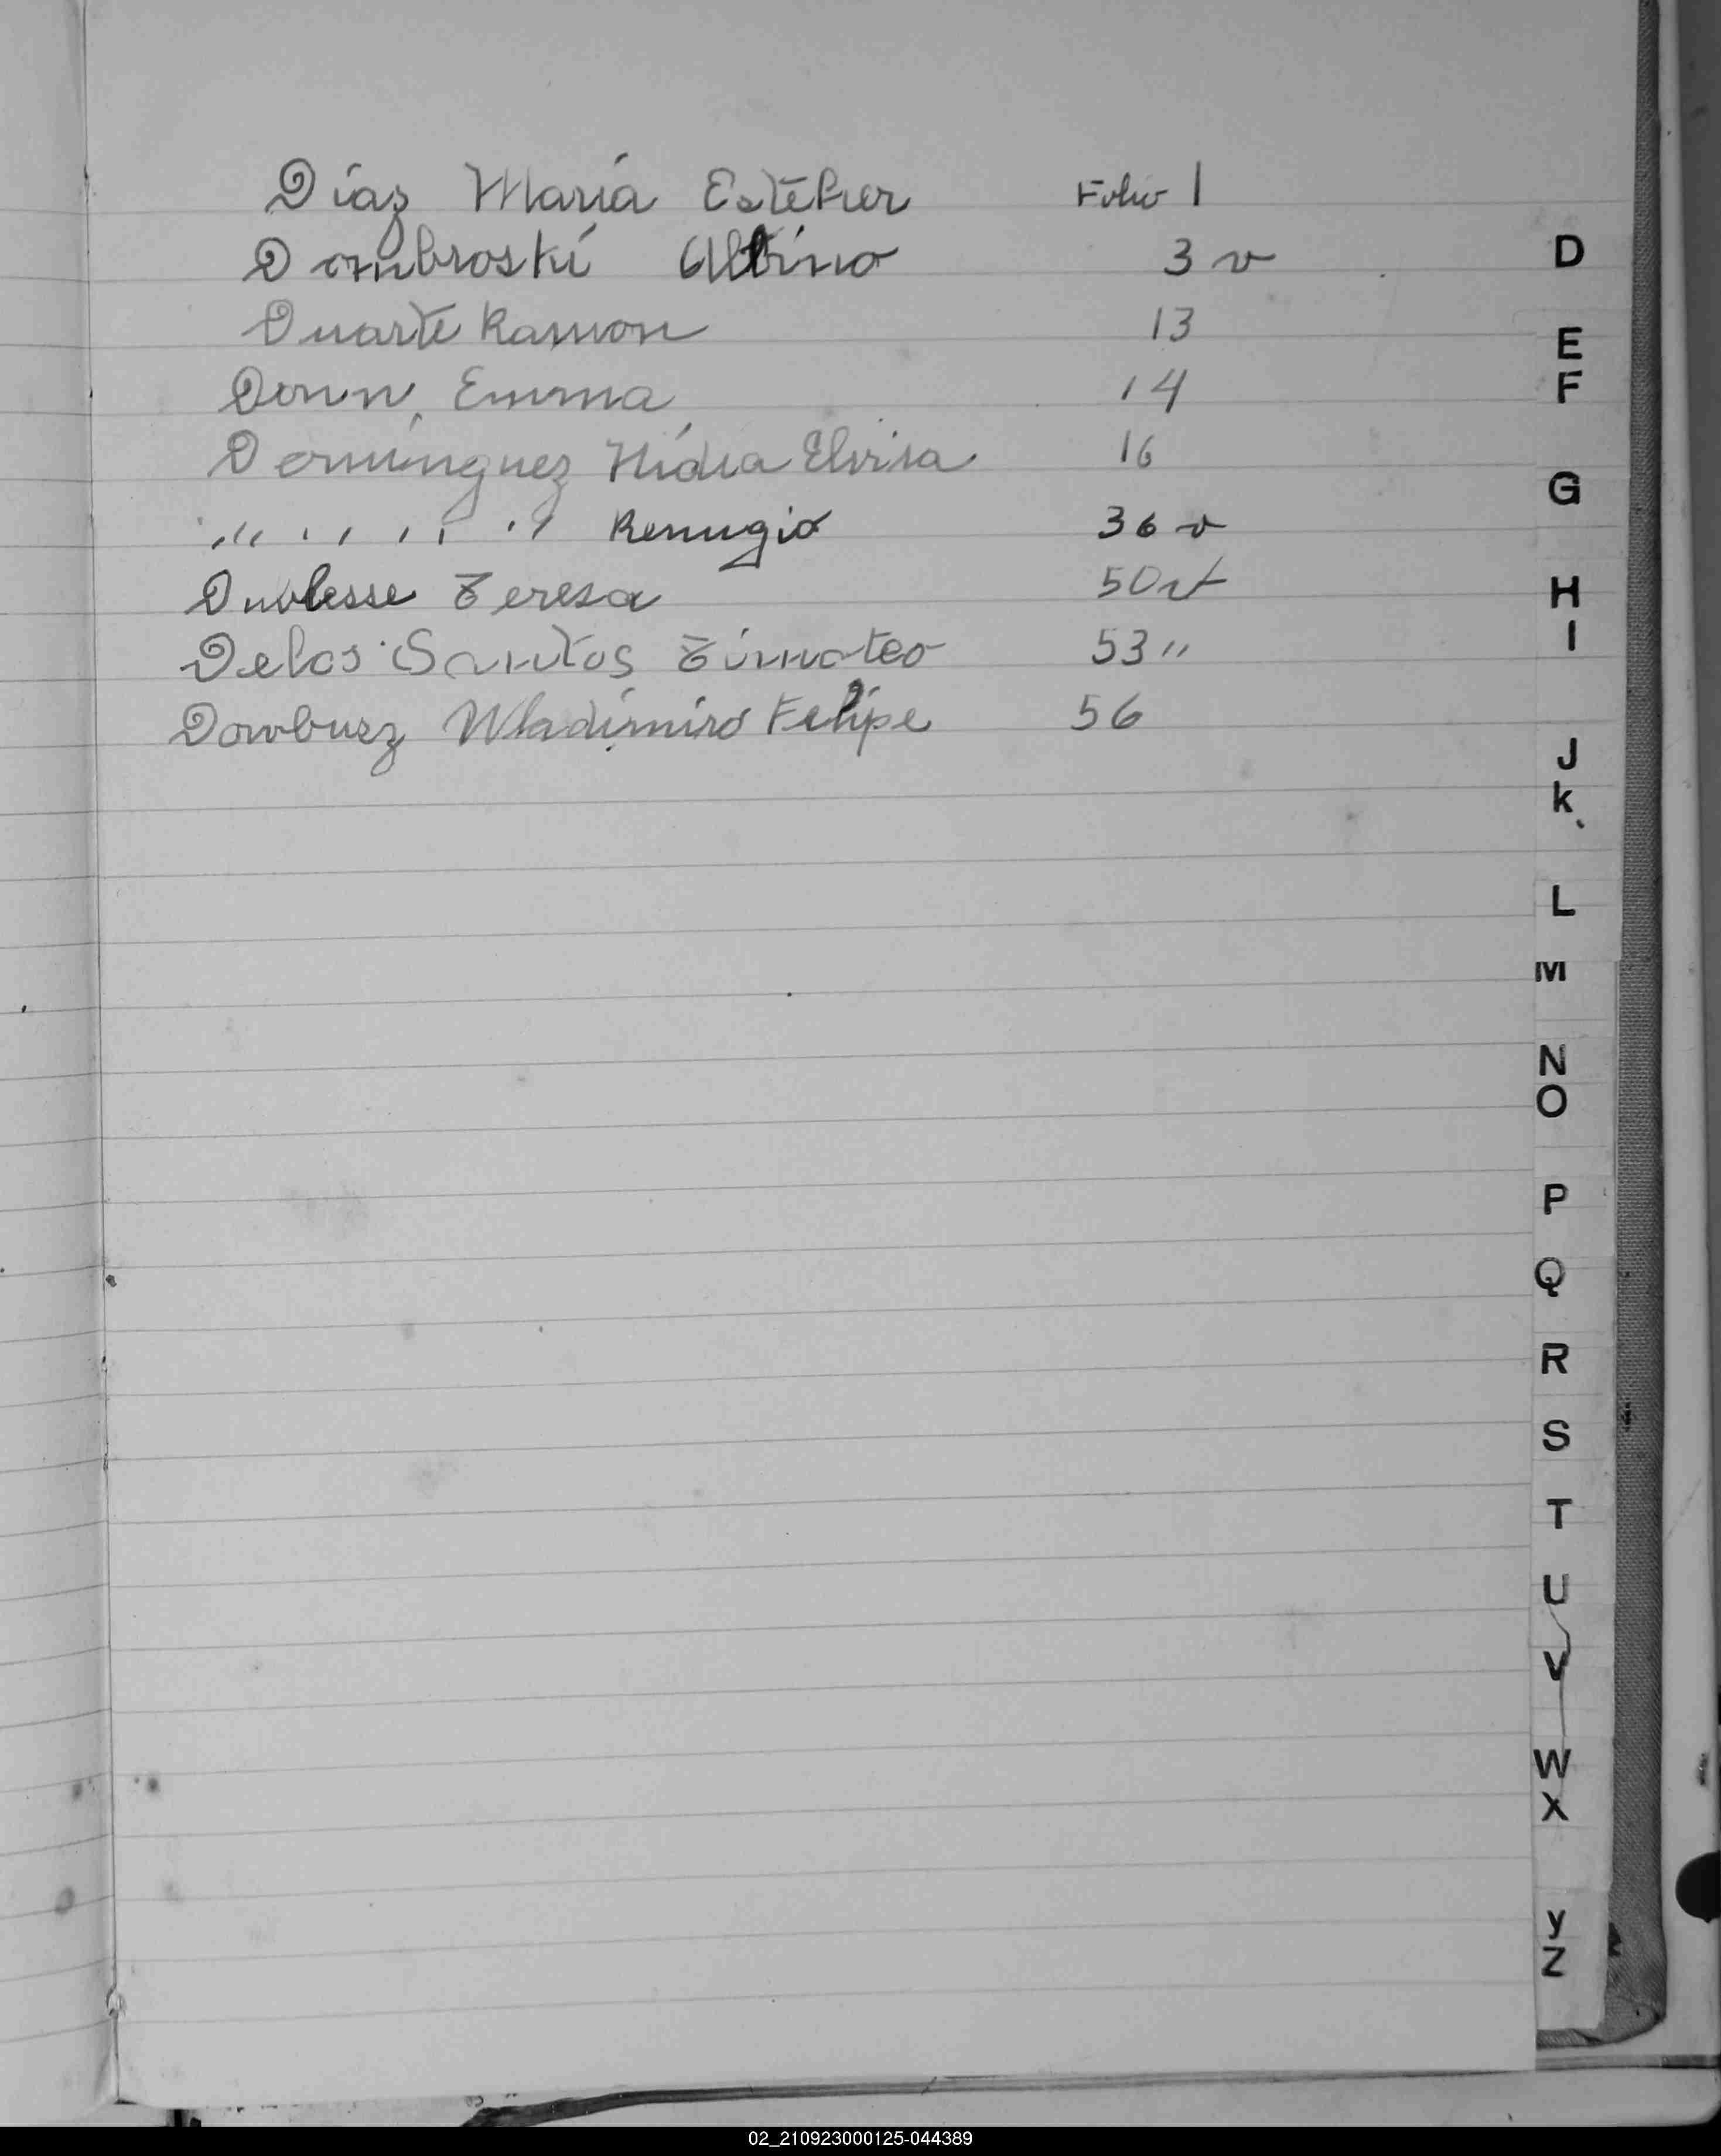 Díaz María Estéher Folio 1
Dombroski Albino 3 v
Duarte Ramon 13
Donn, Emma 14
Domínguez Nídia Elvira 16
" " " " Remigio 36 v
Dublesse Teresa 50 v
Delos Santos Timoteo 53 "
Dowbusz Wladimiro Felipe 56
D
E
F
G
H
I
J
K
L
M
N
O
P
Q
R
S
T
U
V
W
X
y
Z
02_210923000125-044389